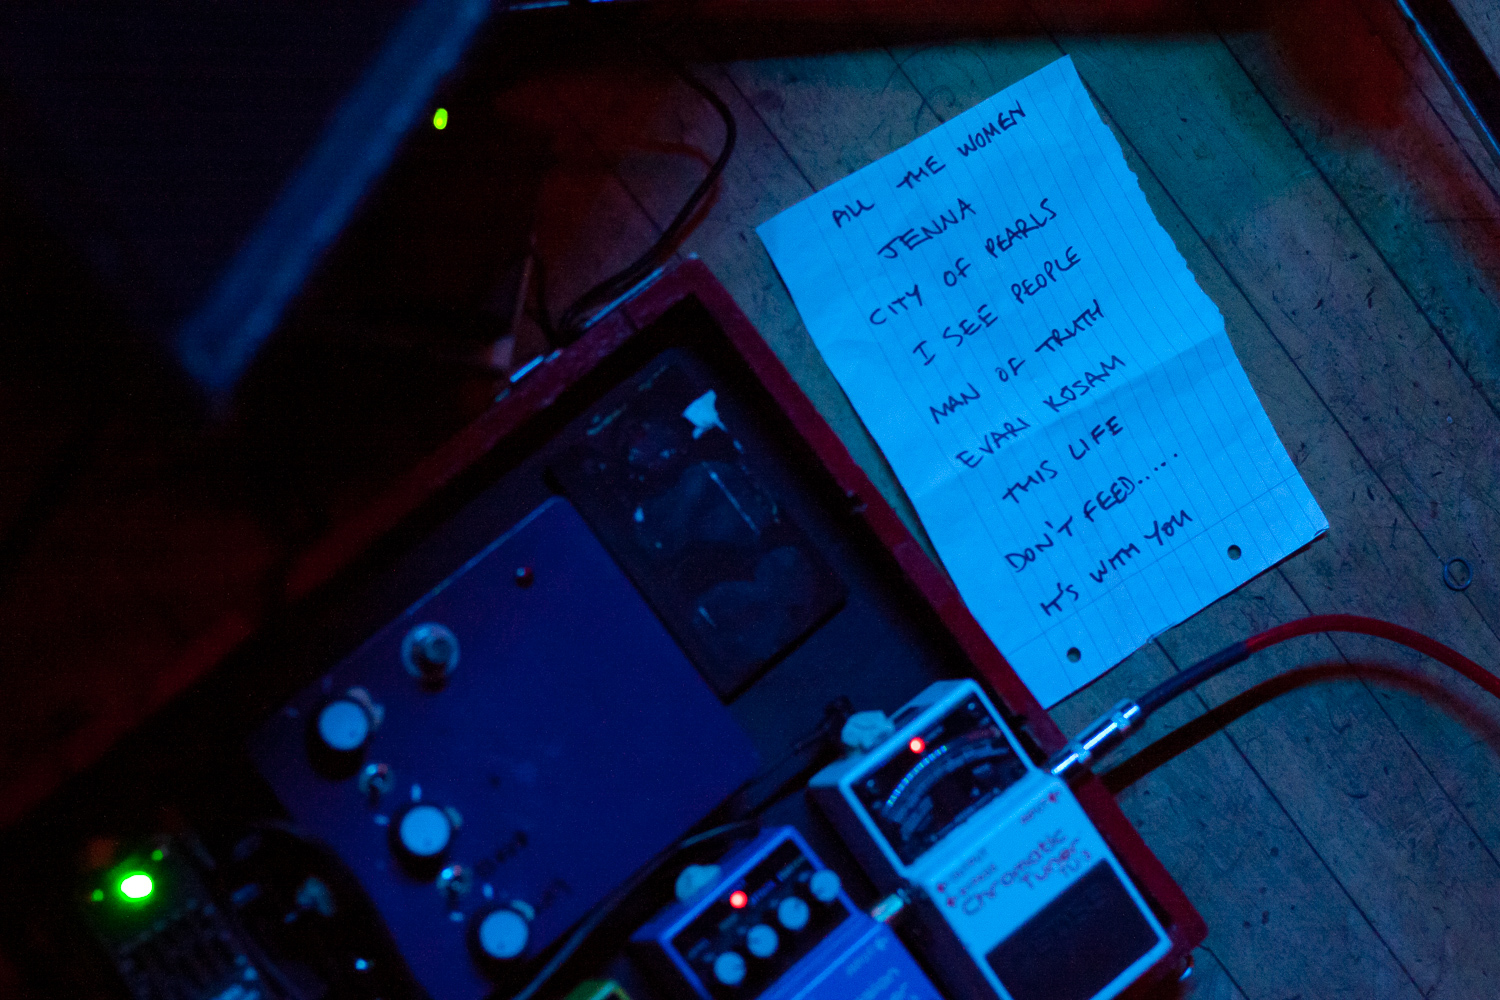 ALL THE WOMEN
JENNA
CITY OF PEARLS
I SEE PEOPLE
MAN OF TRUTH
EVARI KOSAM
THIS LIFE
DON'T FEED.....
IT'S WITH YOU
Chromatic
Tuner
TU-2